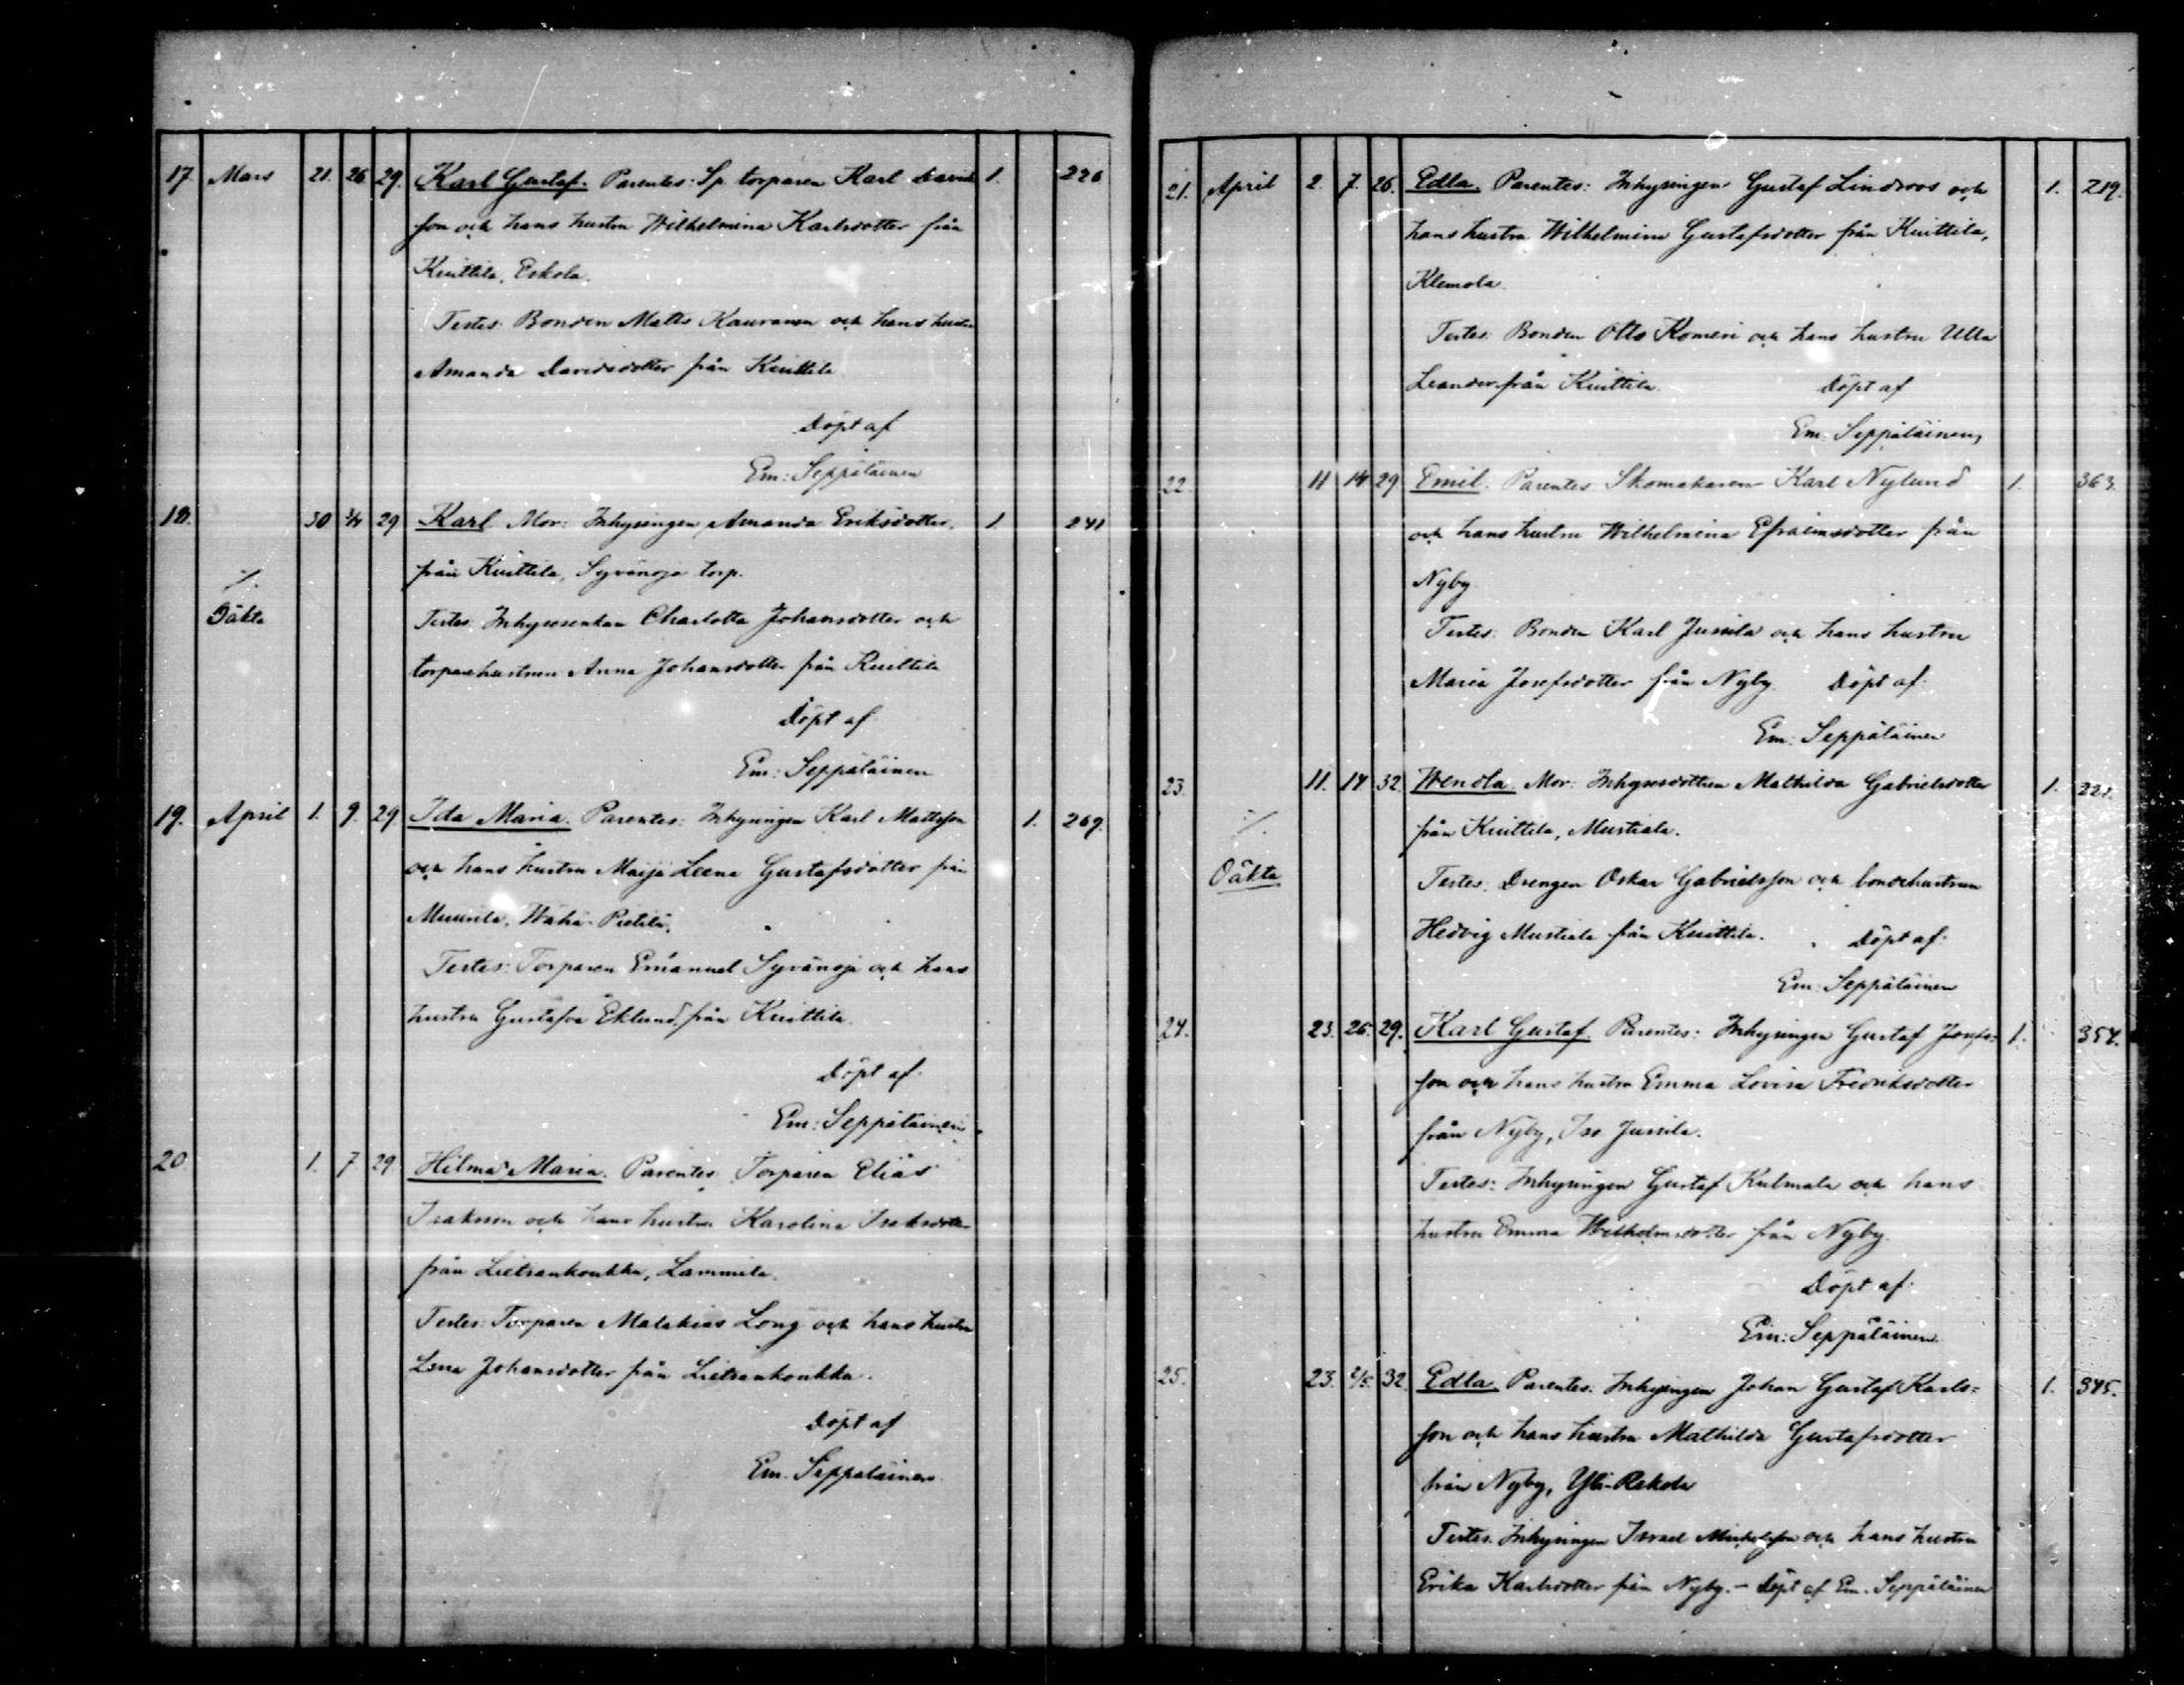 17. Mars 21. 26 29. Karl Gustaf. Parentes: Sp. torparen Karl David 1. 226
son och hans hustru Wilhelmina Karlsdotter från
Kuittila, Eskola.
Testes: Bonden Matts Kauranen och hans hustru
Amanda Davidsdotter från Kuittila
Döpt af
Em: Seppäläinen
18. 30 3/4 29 Karl Mor: Inhysingen Amanda Eriksdotter, 1 241
från Kuittila, Syvänoja torp.
./.
Oäkta Testes: Inhysesenkan Charlotta Johansdotter och
torparehustrun Anna Johansdotter från Kuittila
Döpt af
Em: Seppäläinen
19. April 1. 9. 29 Ida Maria. Parentes: Inhysingen Karl Mattsson 1. 269.
och hans hustru Maija Leena Gustafsdotter från
Muurila, Wähä-Pietilä.
Testes: Torparen Emanuel Syvänoja och hans
hustru Gustafva Eklund, från Kuittila.
Döpt af
Em: Seppäläinen
20 1. 7 29 Hilma Maria. Parentes Torparen Elias
Isaksson och hans hustru Karolina Isaksdotter
från Lietsankoukku, Lammila.
Testes: Torparen Malakias Long och hans hustru
Lena Johansdotter från Lietsankoukku.
Döpt af
Em. Seppäläinen
21. April 2. 7. 26. Edla. Parentes: Inhysingen Gustaf Lindroos och 1. 219.
hans hustru Wilhelmina Gustafsdotter från Kuittila,
Klemola.
Testes: Bonden Otto Komeri och hans hustru Ulla
Leander från Kuittila. Döpt af
Em: Seppäläinen
22. 11 14 29 Emil. Parentes Skomakaren Karl Nylund 1. 363.
och hans hustru Wilhelmina Efraimsdotter från
Nyby
Testes: Bonden Karl Jussila och hans hustru
Maria Josefsdotter från Nyby Döpt af:
Em: Seppäläinen
23. 11. 14 32. Wendla. Mor: Inhysesdottren Mathilda Gabrielsdotter 1. 221.
./. från Kuittila, Mustiala.
Oäkta Testes: Drengen Oskar Gabrielsson och bondehustrun
Hedvig Mustiala från Kuittila. Döpt af:
Em: Seppäläinen
24. 23. 25. 29. Karl Gustaf. Parentes: Inhysingen Gustaf Josefs= 1. 354.
son och hans hustru Emma Lovisa Fredriksdotter
från Nyby, Iso Jussila.
Testes: Inhysingen Gustaf Kulmala och hans
hustru Emma Wilhelmsdotter från Nyby.
Döpt af:
Em: Seppäläinen
25. 23. 2/5. 32. Edla. Parentes: Inhysingen Johan Gustaf Karls= 1. 345.
son och hans hustru Mathilda Gustafsdotter
från Nyby, Yli-Rekola
Testes. Inhysingen Israel Mickelsson och hans hustru
Erika Karlsdotter från Nyby. - Döpt af Em. Seppäläinen